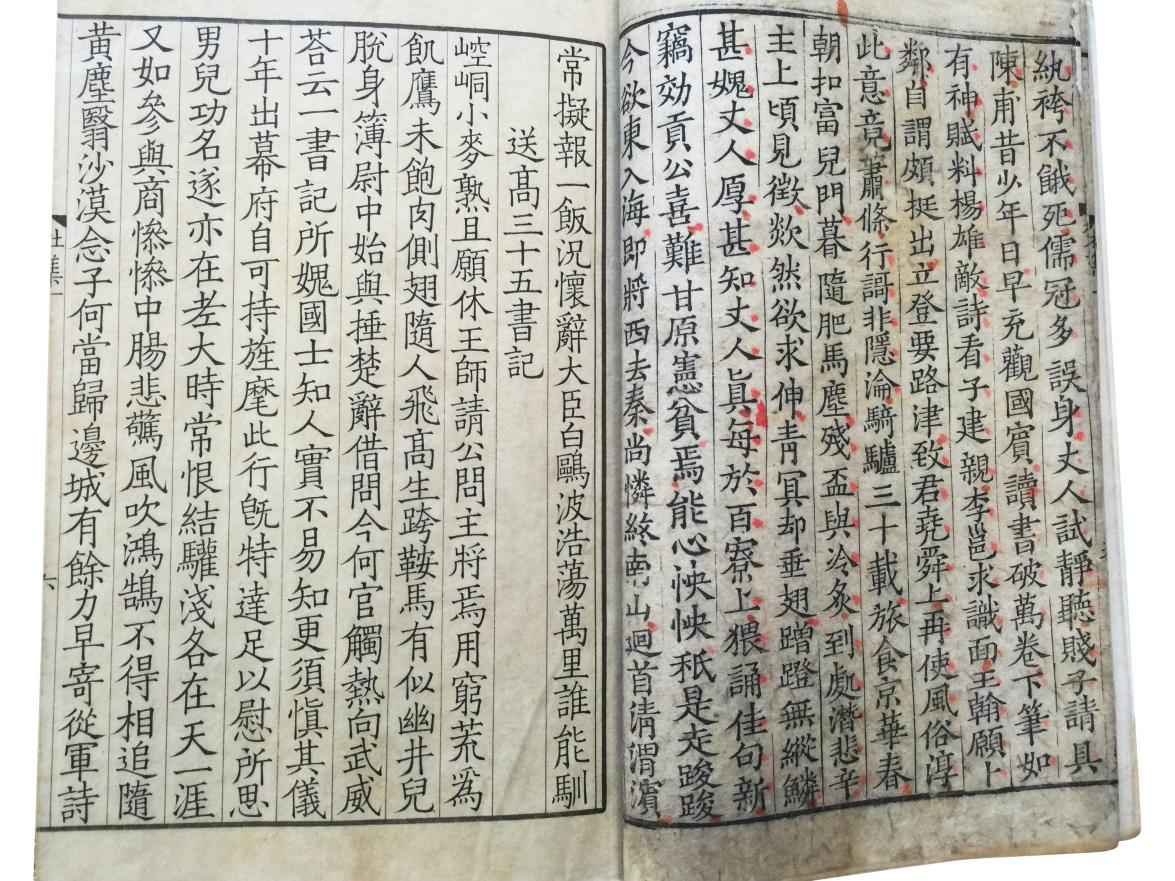 紈袴不餓死儒冠多誤身丈人試靜聽賤子請具
陳甫昔少年日早充觀國賓讀書破萬卷下筆如
有神賦料楊雄敵詩看子建親李邕求識面王翰願卜
鄰自謂頗挺出立登要路津致君堯舜上再使風俗淳
此意竟蕭條行謌非隱淪騎驢三十載旅食京華春
朝扣富兒門暮隨肥馬塵殘盃與冷炙到處潛悲辛
主上頃見徵欻然欲求伸靑冥却垂翅蹭蹬無縱鱗
甚媿丈人厚甚知丈人眞每於百寮上猥誦佳句新
竊効貢公喜難甘原憲貧焉能心怏怏秖是走踆踆
今欲東入海即將西去秦尚憐終南山迴首淸渭濱
常擬報一飯況懷辭大臣白鷗波浩蕩萬里誰能馴
送高三十五書記
崆峒小麥熟且願休王師請公問主將焉用窮荒爲
飢鷹未飽肉側翅隨人飛高生跨鞍馬有似幽井兒
脫身簿尉中始與捶楚辭借問今何官觸熱向武威
荅云一書記所媿國士知人實不易知更須愼其儀
十年出幕府自可持旌麾此行旣特達足以慰所思
男兒功名遂亦在老大時常恨結驩淺各在天一涯
又如參與商慘慘中腸悲驚風吹鴻鵠不得相追隨
黃塵翳沙漠念子何當歸邊城有餘力早寄從軍詩
杜集一
六